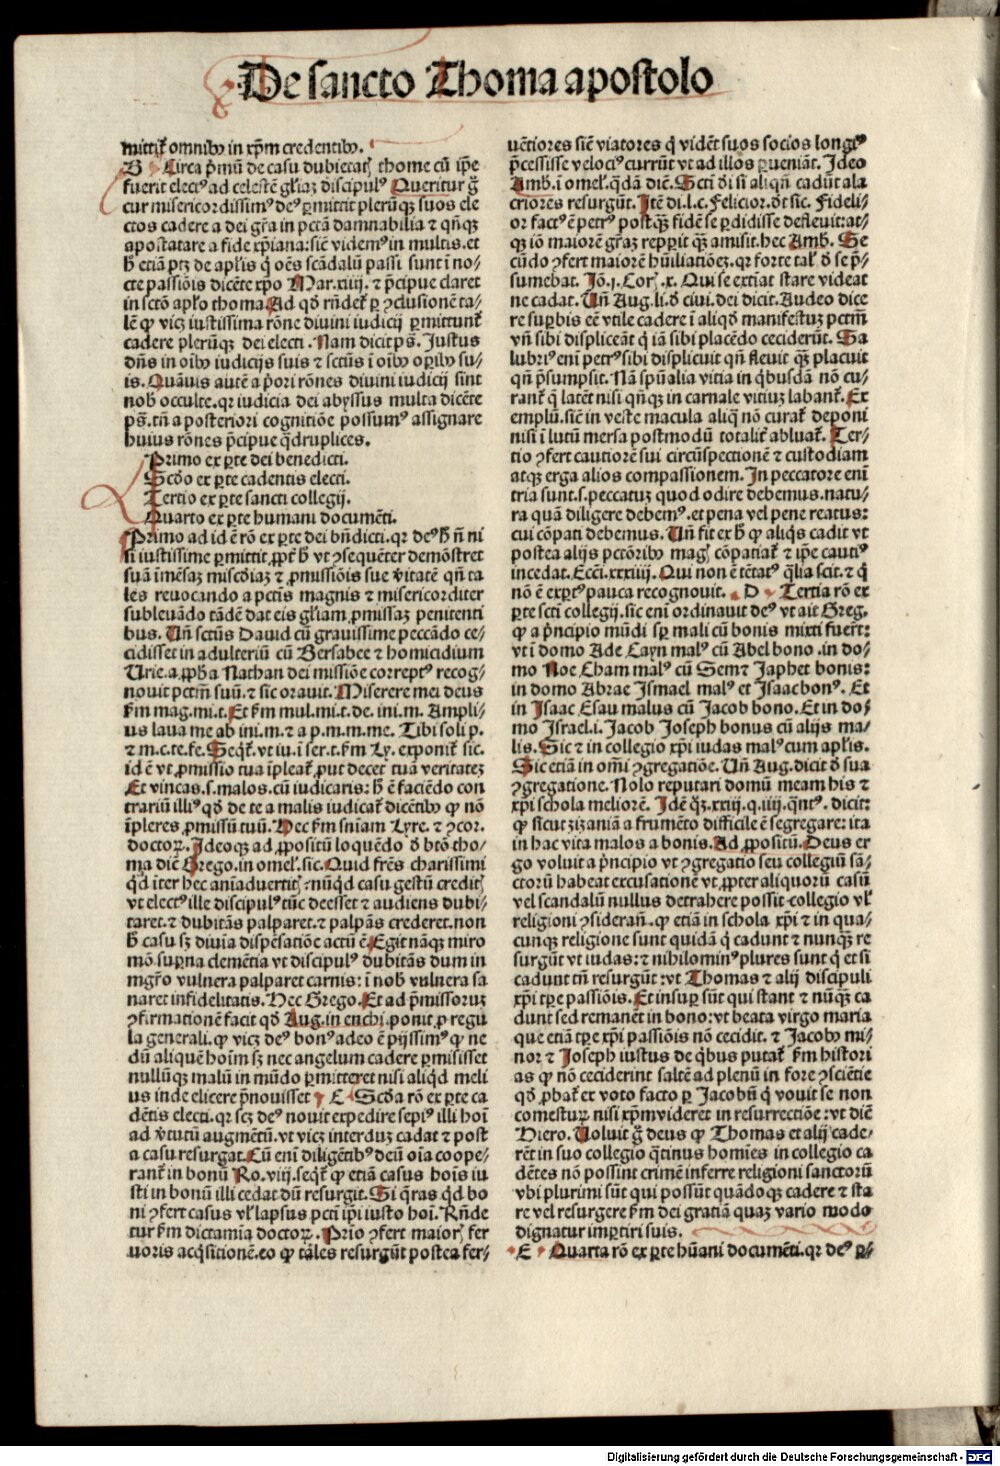 De sancto Thoma apostolo
mittit᷑ omnibꝰ in xp̄m credentibꝰ.
B Circa p̄mū de casu dubietatꝭ thome cū ip̄e
fuerit electꝰ ad celestē gl̄iaꝫ discipulꝰ Queritur g̊
cur misericordissimꝰ deꝰ ꝑmittit plerūqꝫ suos ele
ctos cadere a dei gr̄a in pctā damnabilia ⁊ qn̄qꝫ
apostatare a fide xp̄iana: sic̄ videmꝰ in multis. et
h̄ etiā ptꝫ de apl̄is q̇ oēs scādalū passi sunt ī no⸗
cte passiōis dicēte xp̄o Mar.xiiij. ⁊ p̄cipue claret
in sctō apl̄o thoma. Ad qd̄ rn̄det᷑ ꝑ ꝯclusionē ta⸗
lē ꝙ vicꝫ iustissima rōne diuini iudicij ꝑmittunt᷑
cadere plerūqꝫ dei electi. Nam dicit ps̄. Justus
dn̄s in oībꝰ iudicijs suis ⁊ sctūs ī oībꝰ oꝑibꝰ su⸗
is. Quāuis autē a p̄ori rōnes diuini iudicij sint
nob̄ occulte. qꝛ iudicia dei abyssus multa dicēte
ps̄. tn̄ a posteriori cognitiōe possumꝰ assignare
huius rōnes p̄cipue q̄druplices.
Primo ex ꝑte dei benedicti.
Scd̄o ex ꝑte cadentis electi.
Tertio ex ꝑte sancti collegij.
Quarto ex ꝑte humani documēti.
Primo ad id ē rō ex ꝑte dei bn̄dicti. qꝛ deꝰ h̄ n̄ ni
si iustissime ꝑmittit ꝓt̄ h̄ vt ꝯsequēter demōstret
suā imēsaꝫ misc̄diaꝫ ⁊ ꝓmissiōis sue v̄itatē qn̄ ta
les reuocando a pctīs magnis ⁊ misericorditer
subleuādo tādē dat eis gl̄iam ꝓmissaꝫ penitenti
bus. Un̄ sctūs Dauid cū grauissime peccādo ce⸗
cidisset in adulteriū cū Bersabee ⁊ homicidium
Urie. a ꝓph̄a Nathan dei missiōe correptꝰ recog⸗
nouit pctm̄ suū. ⁊ sic orauit. Miserere mei deus
ẜm mag.mi.t. Et ẜm mul.mi.t.de.ini.m. Ampli⸗
us laua me ab ini.m. ⁊ a p.m.m.me. Tibi soli p.
⁊ m.c.te.fe. Seqt᷑. vt iu.ī ser.t. ẜm Ly. exponit᷑ sic.
id ē vt ꝓmissio tua īpleat᷑ ꝓut decet tuā veritateꝫ
Et vincas. s. malos. cū iudicaris: h̄ ē faciēdo con
trariū illiꝰ qd̄ de te a malis iudicat᷑ dicētibꝰ ꝙ nō
īpleres ꝓmissū tuū. Hec ẜm sn̄iam Lyre. ⁊ ꝯcor.
doctoꝝ. Ideoqꝫ ad ꝓpositū loquēdo d̄ btō tho⸗
ma dic̄ Grego. in omel̄. sic. Quid frēs charissimi
q̇d iter hec aīaduertitꝭ nūq̇d casu gestū creditꝭ
vt electꝰ ille discipulꝰ tūc deesset ⁊ audiens dubi⸗
taret. ⁊ dubitās palparet. ⁊ palpās crederet. non
h̄ casu sꝫ diuīa dispēsatiōe actū ē. Egit nāqꝫ miro
mō suꝑna clemētia vt discipulꝰ dubitās dum in
mgr̄o vulnera palparet carnis: ī nob̄ vulnera sa
naret infidelitatis. Hec Grego. Et ad p̄missoruꝫ
ꝯfirmationē facit qd̄ Aug. in enchi. ponit ꝓ regu
la generali. ꝙ vicꝫ deꝰ bonꝰ adeo ē pijssimꝰ ꝙ ne
dū aliquē hoīm sꝫ nec angelum cadere ꝑmisisset
nullūqꝫ malū in mūdo ꝑmitteret nisi aliq̇d meli
us inde elicere p̄nouisset C Scd̄a rō ex ꝑte ca
dētis electi. qꝛ scꝫ deꝰ nouit expedire sepiꝰ illi hoī
ad v̄tutū augmētū. vt vicꝫ interduꝫ cadat ⁊ post
a casu resurgat. Cū enī diligētibꝰ deū oīa coope⸗
rant᷑ in bonū Ro.viij. seqt᷑ ꝙ etiā casus hoīs iu
sti in bonū illi cedat dū resurgit. Si q̄ras q̇d bo
ni ꝯfert casus vl̄ lapsus pcti ip̄i iusto hoī. Rn̄de
tur ẜm dictamīa doctoꝝ. Prīo ꝯfert maioꝝ fer
uoris acq̇sitionē. eo ꝙ tales resurgūt postea fer⸗
uētiores sic̄ viatores q̇ vidēt suos socios longiꝰ
p̄cessisse velociꝰ currūt vt ad illos ꝑueniāt. Ideo
Amb. ī omel̄. q̄dā dic̄. Scti dī si aliqn̄ cadūt ala
criores resurgūt. Itē di.l.c. Felicior. dt̄ sic. Fideli⸗
or factꝰ ē petrꝰ postqꝫ fidē se ꝑdidisse defleuit: at⸗
qꝫ iō maiorē gr̄aꝫ repꝑit qꝫ amisit. hec Amb. Se
cūdo ꝯfert maiorē hūiliatiōeꝫ. qꝛ forte tal̄ d̄ se p̄⸗
sumebat. Jō.j.Corꝭ.x. Qui se extīat stare videat
ne cadat. Un̄ Aug.li.d̄ ciui.dei dicit. Audeo dice
re suꝑbis eē vtile cadere ī aliqd̄ manifestuꝫ pctm̄
vn̄ sibi displiceāt q̇ iā sibi placēdo ceciderūt. Sa
lubriꝰ enī petrꝰ sibi displicuit qn̄ fleuit qꝫ placuit
qn̄ p̄sumpsit. Nā spūalia vitia in q̇busdā nō cu⸗
rant᷑ q̇ latēt nisi qn̄qꝫ in carnale vitiuꝫ labant᷑. Ex
emplū. sic̄ in veste macula aliq̄ nō curat᷑ deponi
nisi ī lutū mersa postmodū totalit᷑ abluat᷑. Ter⸗
tio ꝯfert cautiorē sui circūspectionē ⁊ custodiam
atqꝫ erga alios compassionem. In peccatore enī
tria sunt. s. peccatuꝫ quod odire debemus. natu⸗
ra quā diligere debemꝰ. et pena vel pene reatus:
cui cōpati debemus. Un̄ fit ex h̄ ꝙ aliq̇s cadit vt
postea alijs pctōribꝰ magꝭ cōpatiat᷑ ⁊ ip̄e cautiꝰ
incedat. Ecci.xxxiiij. Qui non ē tētatꝰ q̄lia scit. ⁊ q̇
nō ē expertꝰ pauca recognouit. D Tertia rō ex
ꝑte scti collegij. sic enī ordinauit deꝰ vt ait Greg.
ꝙ a p̄ncipio mūdi sꝑ mali cū bonis mixti fuerūt:
vt ī domo Ade Cayn malꝰ cū Abel bono. in do⸗
mo Noe Cham malꝰ cū Sem ⁊ Japhet bonis:
in domo Abrae Ismael malꝰ et Isaac bonꝰ. Et
in Isaac Esau malus cū Jacob bono. Et in do⸗
mo Israel. i. Jacob Joseph bonus cū alijs ma⸗
lis. Sic ⁊ in collegio xp̄i iudas malꝰ cum apl̄is.
Sic etiā in omī ꝯgregatiōe. Un̄ Aug. dicit d̄ sua
ꝯgregatione. Nolo reputari domū meam his ⁊
xp̄i schola meliorē. Idē q̇ꝫ.xxiij.q.iiij. q̄ntꝰ. dicit:
ꝙ sicut zizaniā a frumēto difficile ē segregare: ita
in hac vita malos a bonis. Ad ꝓpositū. Deus er
go voluit a p̄ncipio vt ꝯgregatio seu collegiū sā⸗
ctorū habeat excusationē vt ꝓpter aliquorū casū
vel scandalū nullus detrahere possit collegio vl̄
religioni ꝯsiderās. ꝙ etiā in schola xp̄i ⁊ in qua⸗
cunqꝫ religione sunt quidā q̇ cadunt ⁊ nunqꝫ re
surgūt vt iudas: ⁊ nihilominꝰ plures sunt q̇ et si
cadunt tn̄ resurgūt: vt Thomas ⁊ alij discipuli
xp̄i tꝑe passiōis. Et insuꝑ sūt qui stant ⁊ nūqꝫ ca
dunt sed remanēt in bono: vt beata virgo maria
que etiā tꝑe xp̄i passiōis nō cecidit. ⁊ Jacobꝰ mi⸗
nor ⁊ Joseph iustus de q̇bus putat᷑ ẜm histori
as ꝙ nō ceciderint saltē ad plenū in fore ꝯsciētie
qd̄ ꝓbat᷑ ex voto facto ꝑ Jacobū q̇ vouit se non
comesturꝫ nisi xp̄m videret in resurrectiōe: vt dic̄
Hiero. Uoluit g̊ deus ꝙ Thomas et alij cade⸗
rēt in suo collegio q̄tinus homīes in collegio ca
dētes nō possint crimē inferre religioni sanctorū
vbi plurimi sūt qui possūt quādoqꝫ cadere ⁊ sta
re vel resurgere ẜm dei gratiā quaꝫ vario modo
dignatur imꝑtiri suis.
E Quarta rō ex ꝑte hūani documēti. qꝛ deꝰ ꝑ⸗
Digitalisierung gefördert durch die Deutsche Forschungsgemeinschaft - DFG